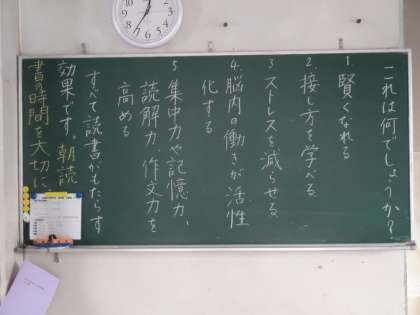 これは何でしょうか？
1. 賢くなれる
2. 接し方を学べる
3. ストレスを減らせる
4. 脳内の働きが活性
化する
5. 集中力や記憶力、
読解力、作文力を
高める
すべて読書がもたらす
効果です。朝読
書の時間を大切に